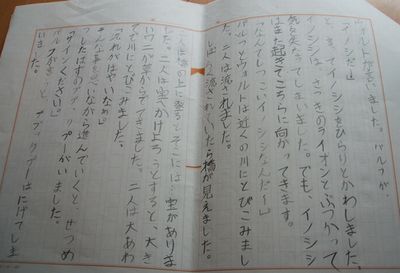 ウォルトが言いました。バルフが、
「イノシシだ」
と、言って、イノシシをひらりとかわしました。
イノシシは、さっきのライオンと、ぶつかって
気を失なってしまいました。でも、イノシシ
はまた起きてこちらに向かってきます。
「なんてしつこいイノシシなんだー」
バルフとウォルトは近くの川にとびこみまし
た。二人は流されました。
しばらく流されていたら橋が見えました。
二人は橋の上に登るとそこには…宝がありま
した。二人は宝へかけよろうとすると、大き
いワニが宝からでてきました。二人は大あわ
てで川にとびこみました。
「流れがはやいなあ」
そんな事を思いながら進んでいくと、せつめ
つしたはずの
がいました。
「サインください」
バルフが言うと、
はにげてしま
いました。